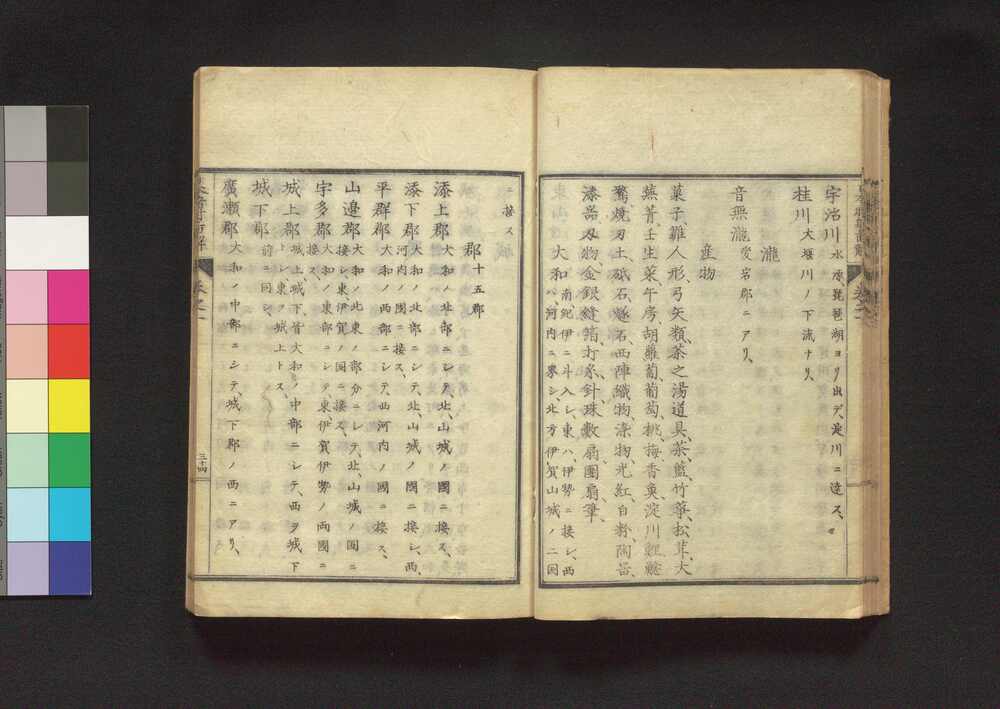 宇治川水原琵琶湖ヨリ出デ、淀川ニ達ス、
桂川大堰川ノ下流ナリ、
瀧
音無瀧愛宕郡ニアリ、
産物
菓子、雛人形、弓矢類、茶之湯道具、茶、藍、竹、筍、松茸、大
蕪菁、壬生菜、午房、胡蘿蔔、葡萄、桃、梅、香魚、淀川鯉、
鷺焼、刃土砥石、燧石、西陣織物、染物、光紅、白粉、陶器、
漆器、刃物、金銀、縫箔、打糸、針、珠數、扇、團扇、筆、
大和南紀伊ニ斗入レ、東ハ、伊勢ニ接シ、西
ハ、河内ニ界シ、北方伊賀山城ノ二国
ニ接ス
郡十五郡
添上郡大和ノ北部ニシテ、北、山城ノ國ニ接ス、
添下郡大和ノ北部ニシテ、北山城ノ國ニ接シ、西
河内ノ國ニ接ス、
平群郡大和ノ西部ニシテ、西河内ノ國ニ接ス、
山邉郡大和ノ北東ノ部分ニシテ、北、山城ノ國ニ
接シ、東、伊賀ノ國ニ接ス、
宇多郡大和ノ東部ニシテ、東、伊賀伊勢ノ両國ニ
接ス、
城上郡城上城下皆大和ノ中部ニシテ、西ヲ城下
トシ、東ヲ城上トス、
城下郡前ニ同シ、
廣瀬郡大和ノ中部ニシテ、城下郡ノ西ニアリ、
三十四